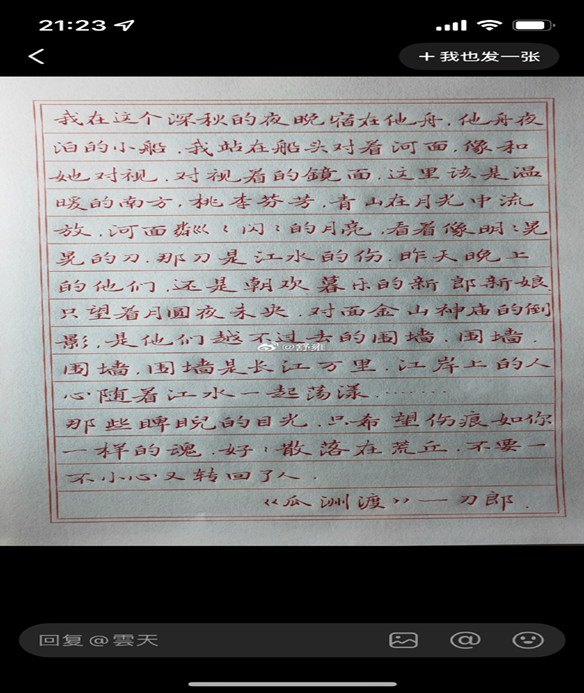 21:23
+ 我也发一张
我在这个深秋的夜晚宿在他舟.他舟夜
泊的小船.我站在船头对着河面.像和
她对视.对视着的镜面.这里该是温
暖的南方.桃李芬芳.青山在月光中流
放.河面粼巛〻闪〻的月亮.看着像明〻晃
晃的刀.那刀是江水的伤.昨天晚上
的他们.还是朝欢暮乐的新郎新娘.
只望着月圆夜未央.对面金山神庙的倒
影.是他们越不过去的围墙.围墙.
围墙.围墙是长江万里.江岸上的人
心随着江水一起荡漾.........
@舒雍
那些睥睨的目光.只希望伤痕如你
一样的魂.好〻散落在荒丘.不要一
不小心又转回了人.
《瓜洲渡》一刀郎.
回复@雲天